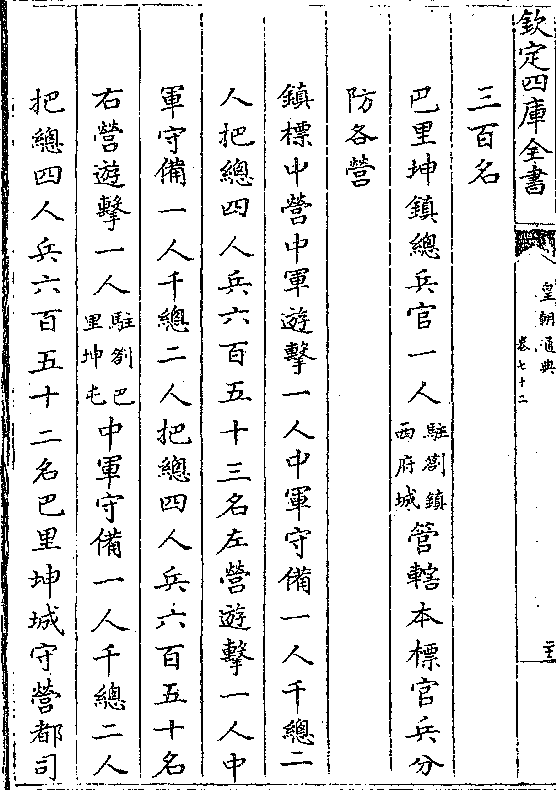 欽定四庫全書
皇朝通典
卷七十二
三百名
巴里坤鎮總兵官一人駐劄鎮西府城管轄本標官兵分
防各營
鎮標中營中軍遊擊一人中軍守備一人千總二
人把總四人兵六百五十三名左營遊擊一人中
軍守備一人千總二人把總四人兵六百五十名
右營遊擊一人駐劄巴里坤屯中軍守備一人千總二人
把總四人兵六百五十二名巴里坤城守營都司